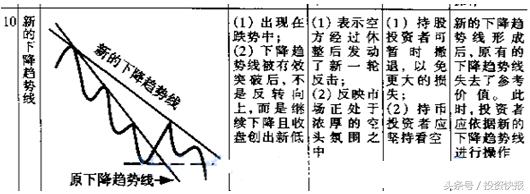 10
新的下降趋势线
新的下降趋势线
原下降趋势线
(1) 出现在
跌势中；
(2) 下降趋
势线被有效
突破后，不
是反转向
上，而是继
续下降且收
盘创出新低
(1) 表示空
方经过休
整后发动
了新一轮
反击；
(2) 反映市
场正处于
浓厚的空
头氛围之
中
(1) 持股
投资者可
暂时搬
退，以免
更大的损
失；
(2) 持币
投资者应
坚持看空
新的下降趋
势线形成
后，原有的
下降趋势线
失去了参考
价值。此
时，投资者
应依据新的
下降趋势线
进行操作
头条号 / 投资快报